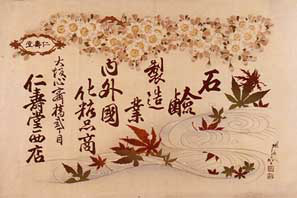 石鹼
製造業
内外國
化粧品商
大阪心斎橋弐丁目
仁壽堂西店
仁壽堂